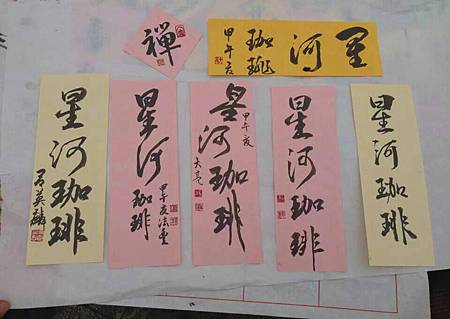 禪
星河珈琲
甲午夏
星河珈琲
星河珈琲
甲午夏
星河珈琲
甲午夏
星河珈琲
星河珈琲